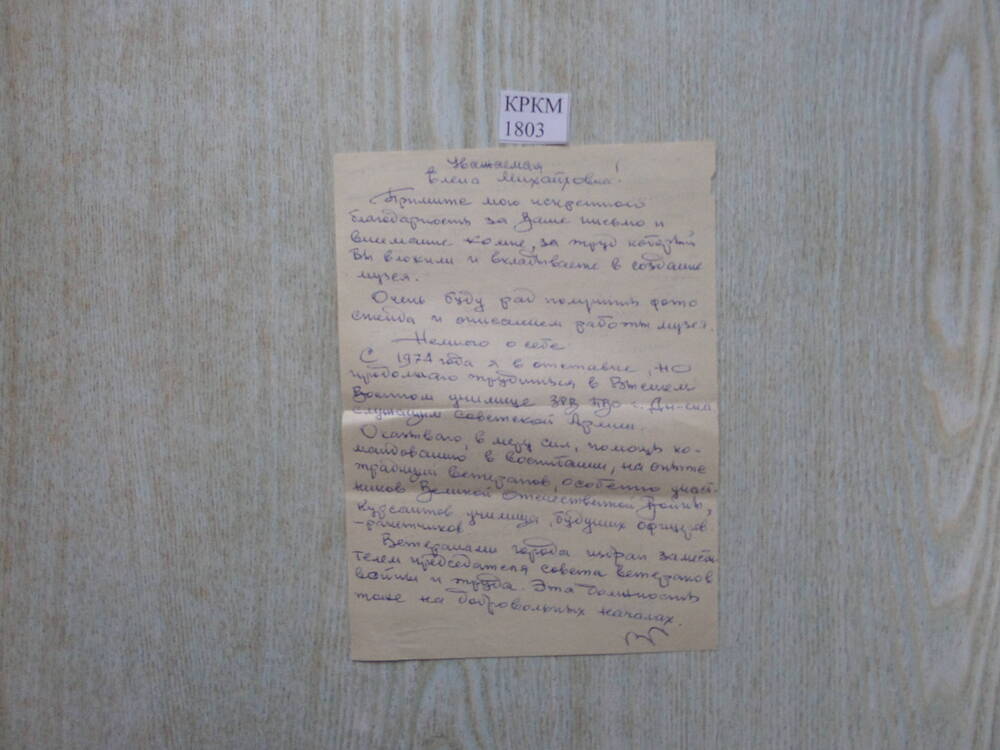 КРКМ
1803
Уважаемая
Елена Михайловна!
Примите мою искреннюю
благодарность за Ваше письмо и
внимание ко мне, за труд который
Вы вложили и вкладываете в создание
музея.
Очень буду рад получить фото
стенда и описанием работы музея.
Немного о себе
С 1974 года я в отставке, но
продолжаю трудиться в Высшем
Военном училище ЗРВ ПВО г. Дн-ска
служащим Советской Армии.
Оказываю, в меру сил, помощь ко-
мандованию в воспитании, на опыте
традиций ветеранов, особенно участ-
ников Великой Отечественной Войны,
курсантов училища, будущих офицеров
-ракетчиков
Ветеранами города избран замести-
телем председателя совета ветеранов
войны и труда. Эта должность
тоже на добровольных началах.